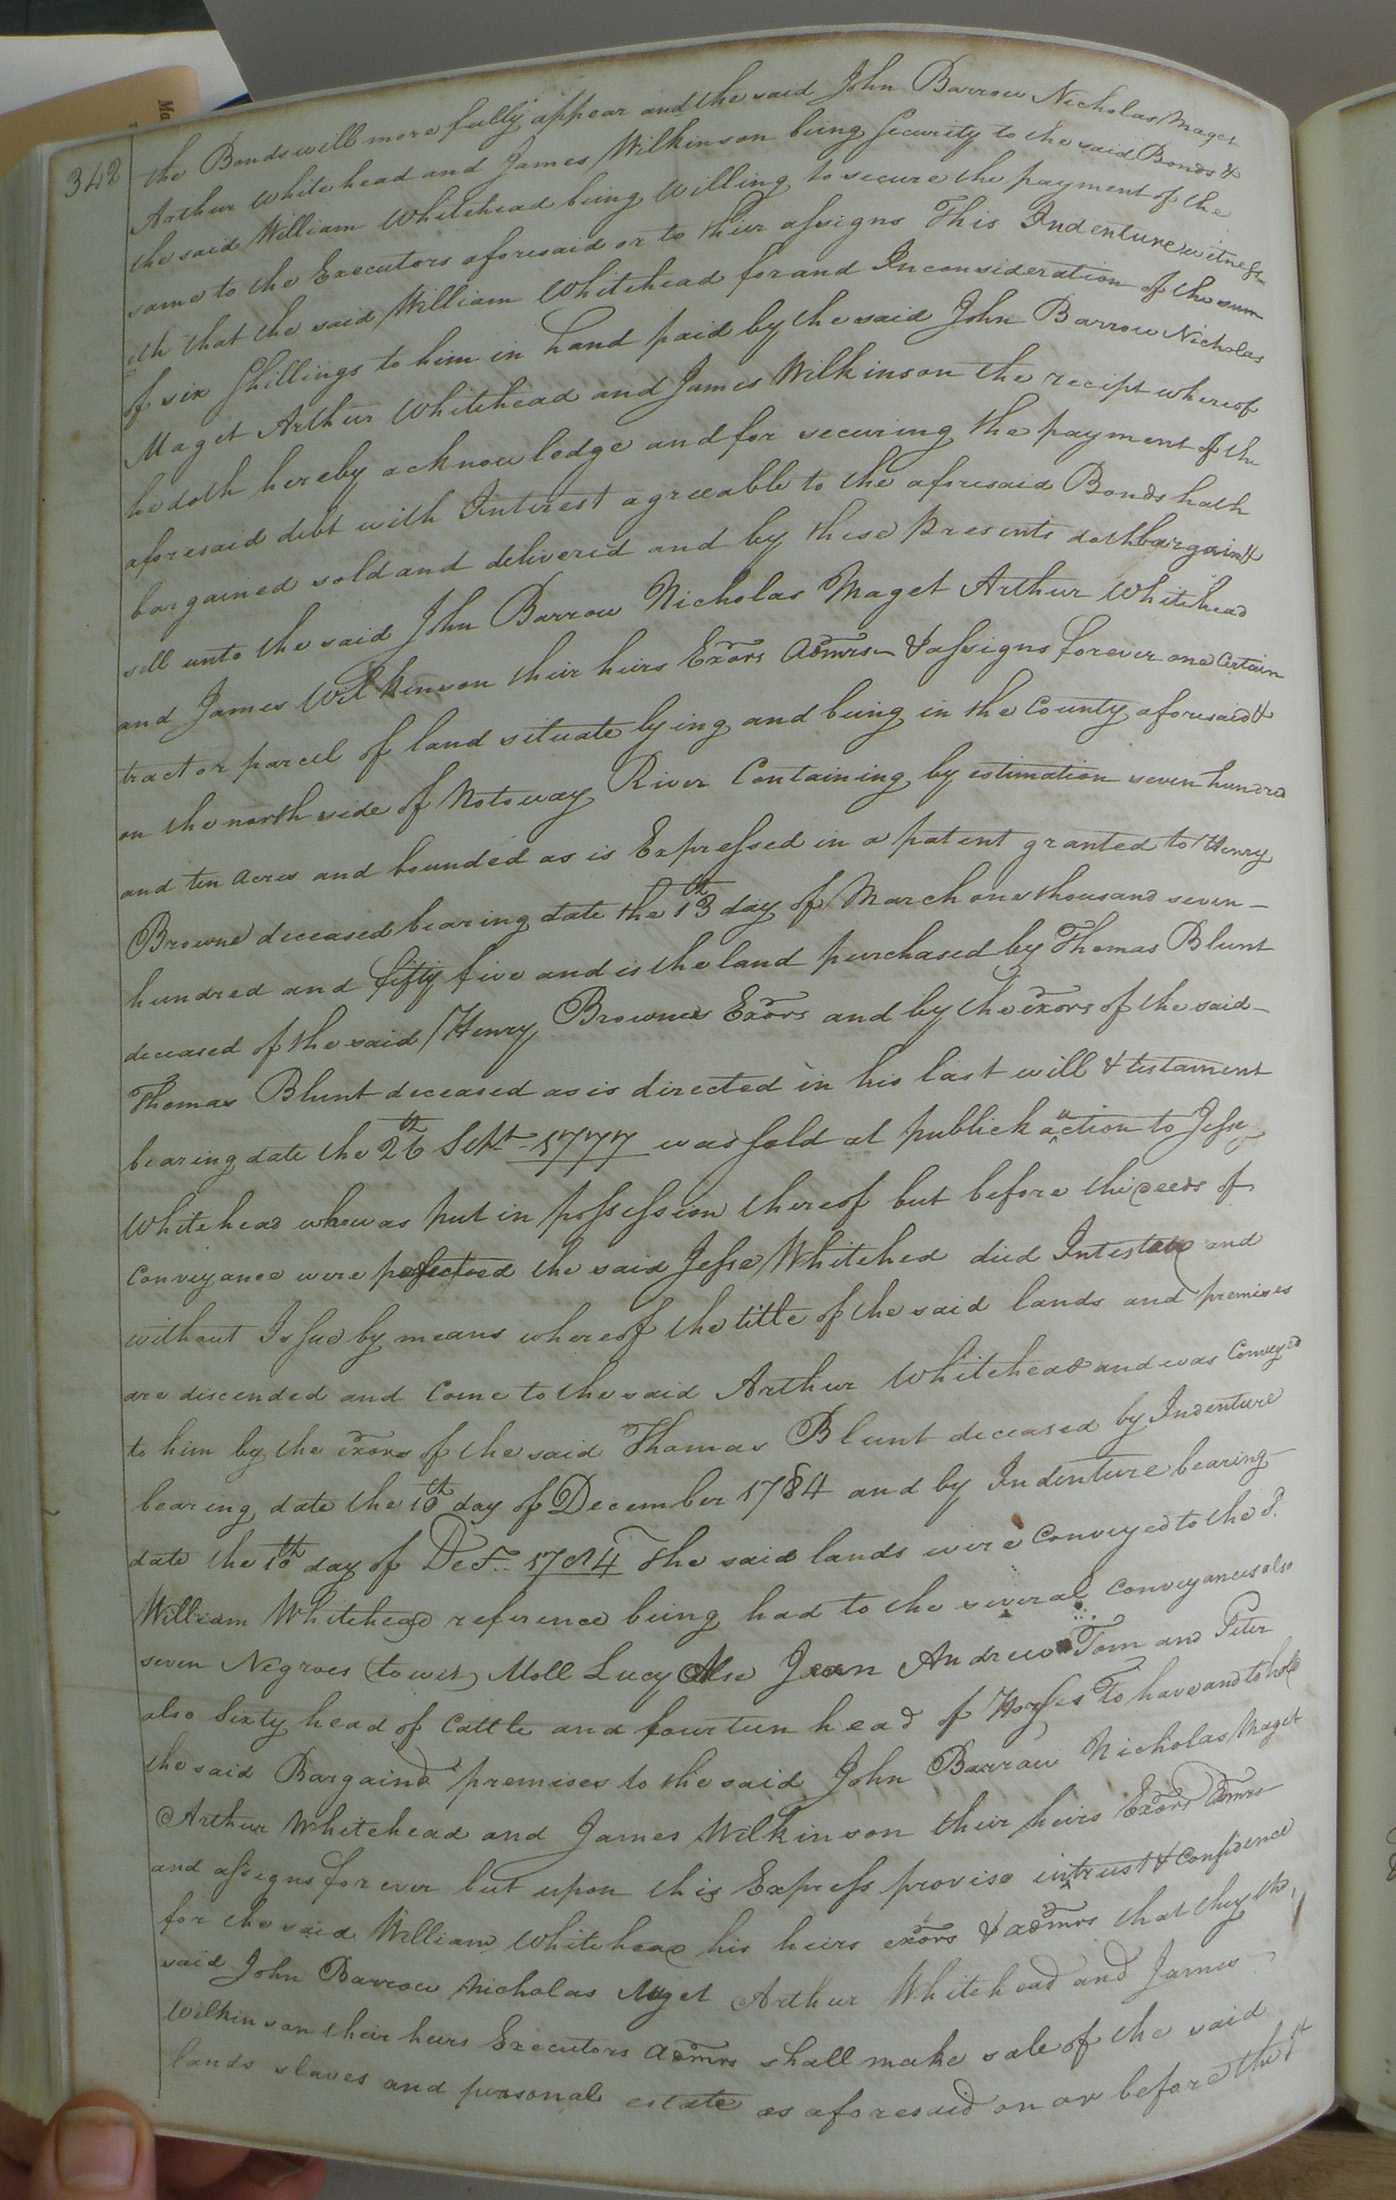 Ma
342
the Bonds will more fully appear and the said John Barrow Nicholas Maget
Arthur Whitehead and James Wilkinson being Security to the said Bonds &
the said William Whitehead being Willing to secure the payment of the
same to the Executors aforesaid or to their assigns This Indenture witness
eth that the said William Whitehead for and Inconsideration of the sum
of six Shillings to him in hand paid by the said John Barrow Nicholas
Maget Arthur Whitehead and James Wilkinson the recipt whereof
he doth hereby acknowledge and for securing the payment of the
aforesaid debt with Interest agreeable to the aforesaid Bonds hath
bargained sold and delivered and by these presents doth bargain &
sell unto the said John Barrow Nicholas Maget Arthur Whitehead
and James Wilkinson their heirs Exors Admrs & assigns forever one Certain
tract or parcel of land situate lying and being in the County aforesaid &
on the north side of Notoway River Containing by estimation seven hundred
and ten acres and bounded as is Expressed in a patent granted to Henry
Browne deceased bearing date the 13th day of March one thousand seven-
hundred and fifty five and is the land purchased by Thomas Blunt
deceased of the said Henry Brownes Exors and by the exors of the said-
Thomas Blunt deceased as is directed in his last will & testament
bearing date the 26th Sept 1777 was sold at publick auction to Jesse
Whitehead who was put in possession thereof but before the deeds of
Conveyance were perfected the said Jesse Whitehed died Intestate and
without Issue by means whereof the title of the said lands and premises
are discended and Come to the said Arthur Whitehead and was Conveyed
to him by the exors of the said Thomas Blunt deceased by Indenture
bearing date the 10th day of December 1784 and by Indenture bearing-
date the 10th day of Dec. 1784 the said lands were Conveyed to the sd.
William Whitehead reference being had to the several Conveyances also
seven Negroes (to wit) Moll Lucy Alse Jean Andrew Tom and Peter
also Sixty head of Cattle and fourteen head of Horses To have and to hold
the said Bargaind premises to the said John Barrow Nicholas Maget
Arthur Whitehead and James Wilkinson their heirs Exors admrs
and assigns forever but upon this Express proviso in trust & Confidence
for the said William Whitehead his heirs exors & admrs that they the
said John Barrow Nicholas Maget Arthur Whitehead and James
Wilkinson their heirs Executors admrs shall make sale of the said
lands slaves and personal estate as aforesaid on or before the 1st